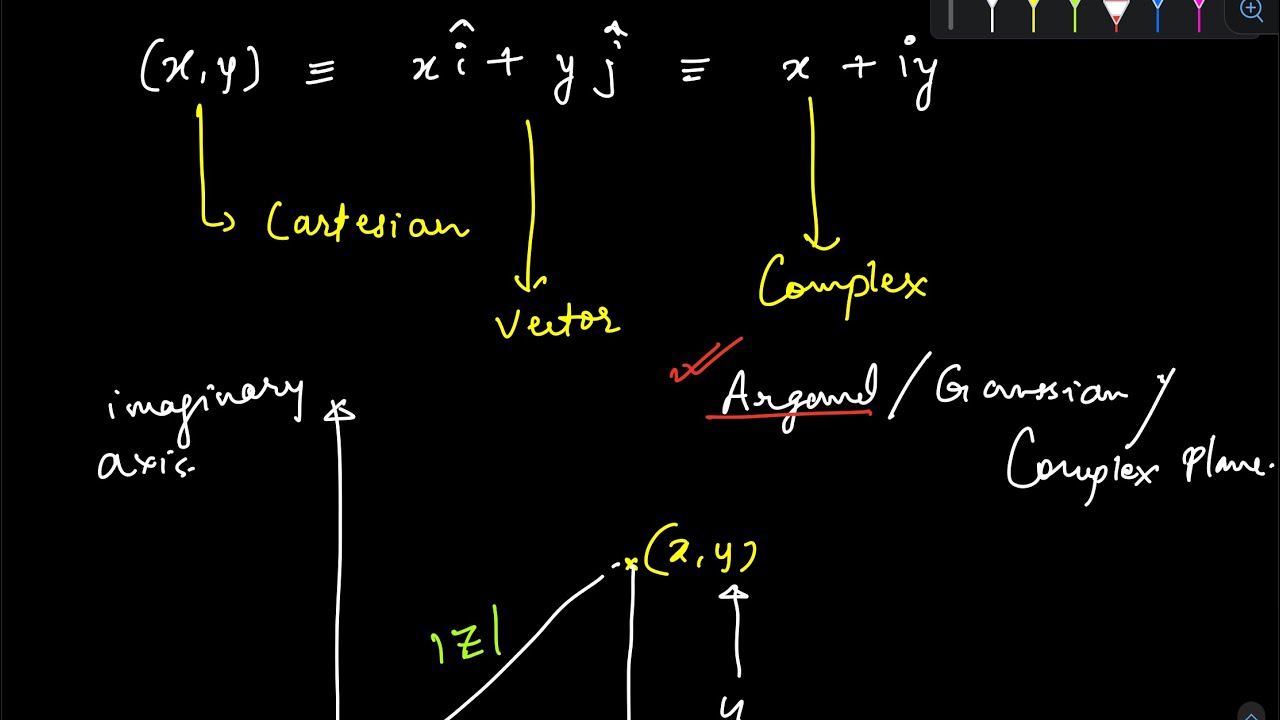 (x, y) ≡ x î + y ĵ ≡ x + iy
Cartesian
Vector
Complex
Argand / Gaussian /
Complex plane.
imaginary
axis.
(x, y)
|z|
y